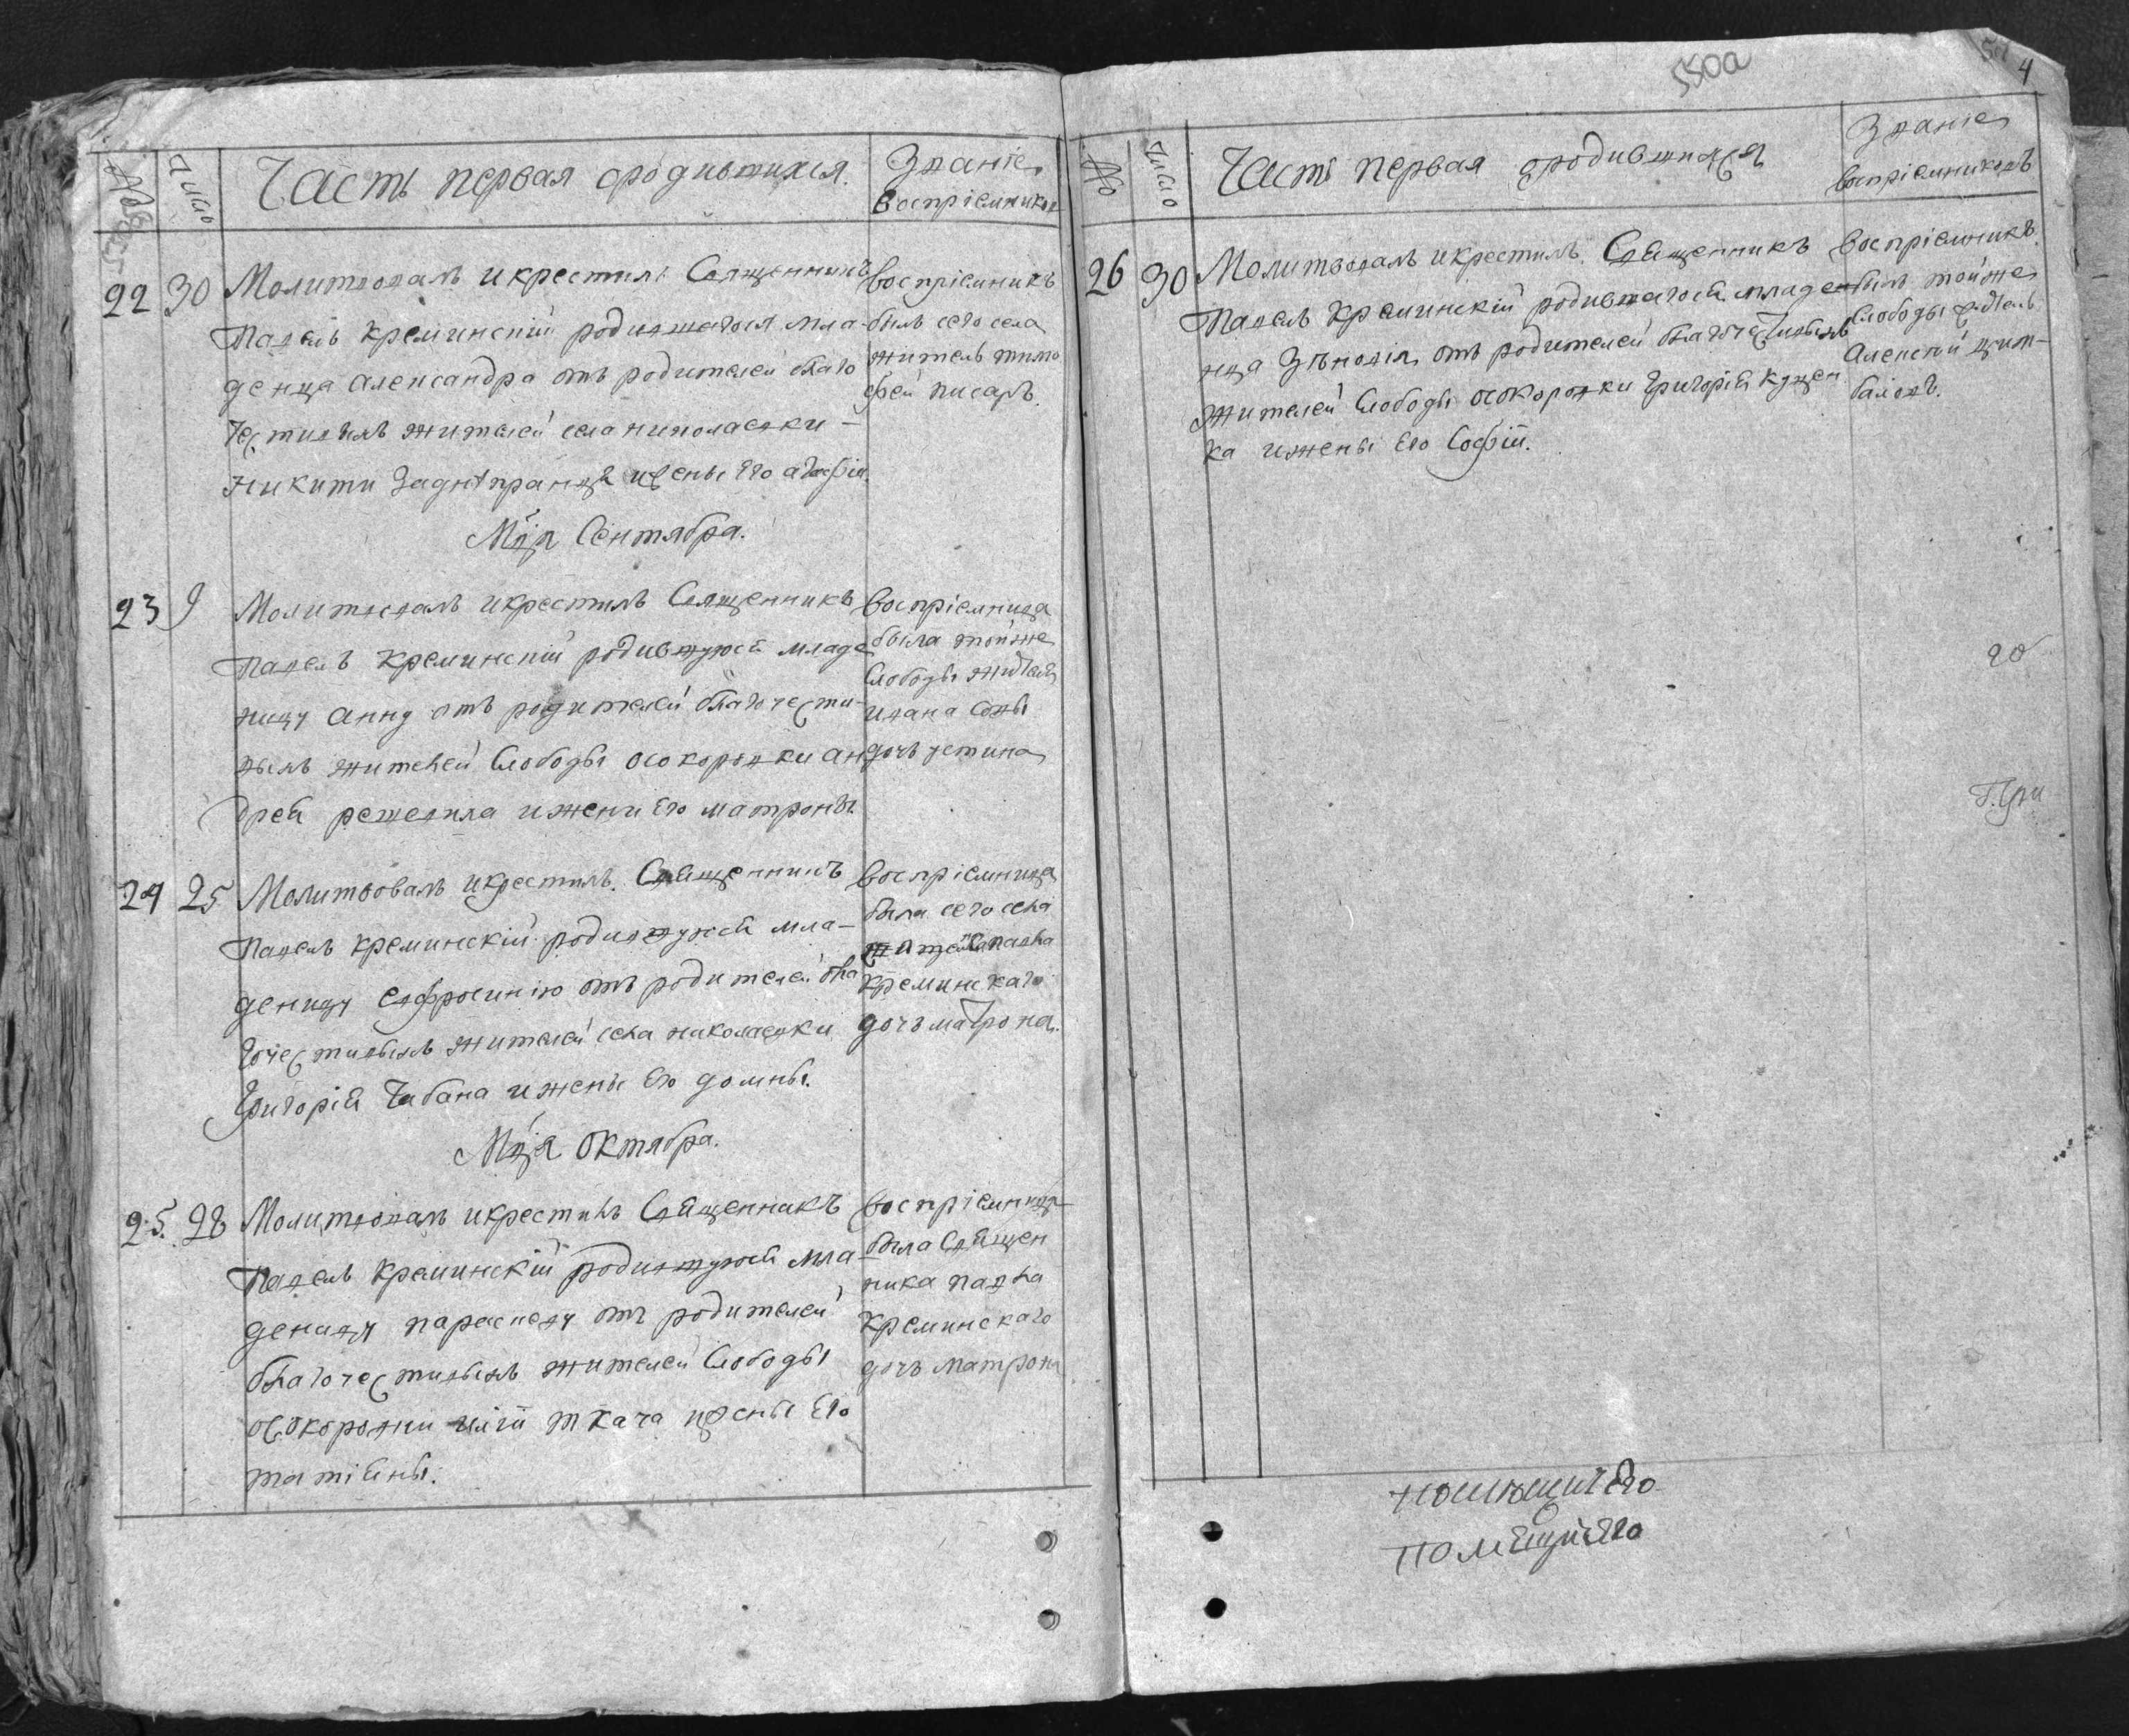 №
Число
Часть первая ородившихся.
Званіе
Воспріемниковъ
22 30 Молитвовалъ икрестилъ Священникъ
Павелъ Креминскій родившагося мла-
денца Александра отъ родителей благо
честивыхъ жителей села николаевки
Никити Заднѣпранца ижены Его агафіи.
воспріемникъ
былъ сего села
житель тимо
фей писарь.
Мца Сентября.
23 9 Молитвовалъ икрестилъ Священникъ
Павелъ Креминскій родившуюся младе
ницу Анну отъ родителей благочести-
выхъ жителей Слободы осокоровки ан
дрея решетила ижени Его матроны.
воспріемница
была тойже
Слободы жителя
ивана
дочь устина
24 25 Молитвовалъ икрестилъ Священникъ
Павелъ креминскій родившуюся мла-
деницу евфросинію отъ родителей бла
гочестивыхъ жителей села николаевки
Григорія Чабана ижены Его домны.
воспріемница
была сего села
павла
Креминскаго
дочь матрона.
Мца Октября.
25. 28 Молитвовалъ икрестилъ Священникъ
Павелъ Креминскій родившуюся мла
деницу параскеву отъ родителей
благочестивыхъ жителей Слободы
осокоровки иліи ткача ижены Его
татіяны.
воспріемница
была Священ
ника павла
Креминскаго
дочь матрона
550а
4
№
Число
Часть первая ородившихся
Званіе
воспріемниковъ
26 30 Молитвовалъ икрестилъ Священникъ
Павелъ Креминскій родившагося младе
нца Зѣновія отъ родителей благочестивыхъ
жителей Слободы осокоровки Григорія Куцен
ка ижены Его Софіи.
воспріемникъ
былъ тойже
Слободы житель
Алексей
баловъ.
20
помѣщицѣего